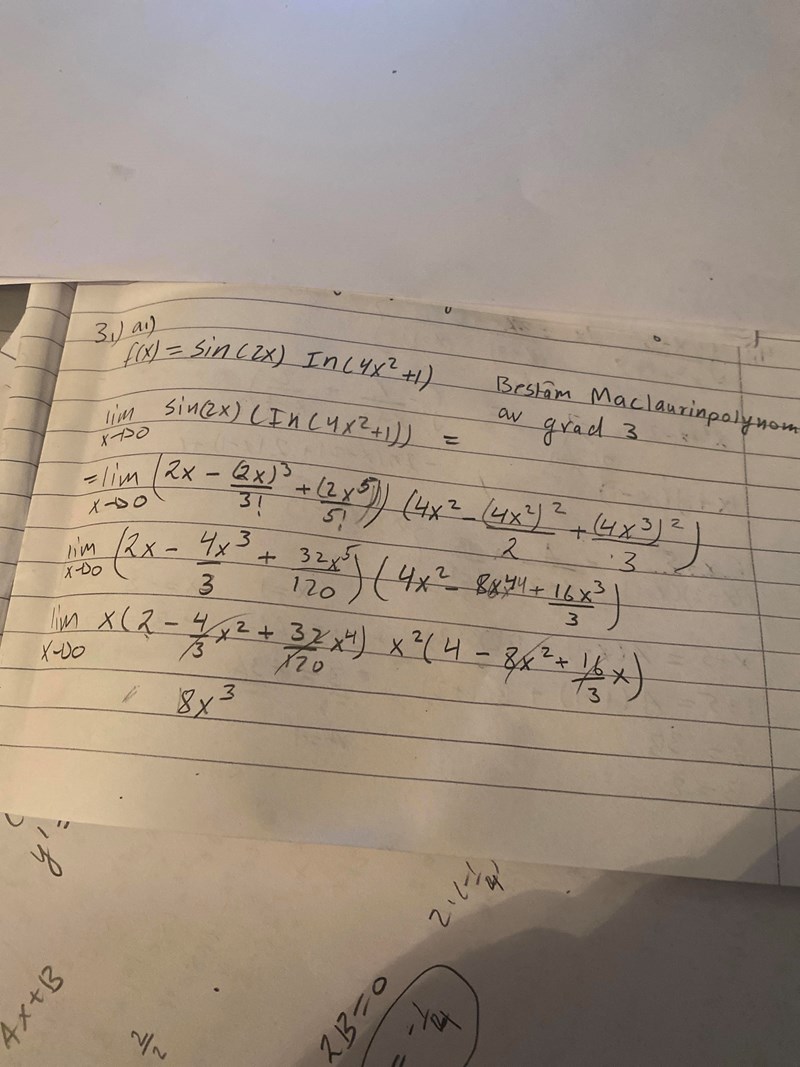 3.) a.)
f(x) = sin(2x) In(4x²+1)
Bestäm Maclaurinpolynom
av grad 3
lim x→0 sin(2x) (In(4x²+1)) =
= lim x→0 (2x - (2x)³/3! + (2x⁵)/5!)) (4x² - (4x²)²/2 + (4x³)²/3)
lim x→0 (2x - 4x³/3 + 32x⁵/120) (4x² - 8x⁴⁴ + 16x³/3)
lim x→0 x(2 - 4/3 x² + 32/120 x⁴) x²(4 - 8x² + 16/3 x)
8x³
y' =
4x+B
2/2
2B=0
2·(-1/4)
= -1/4